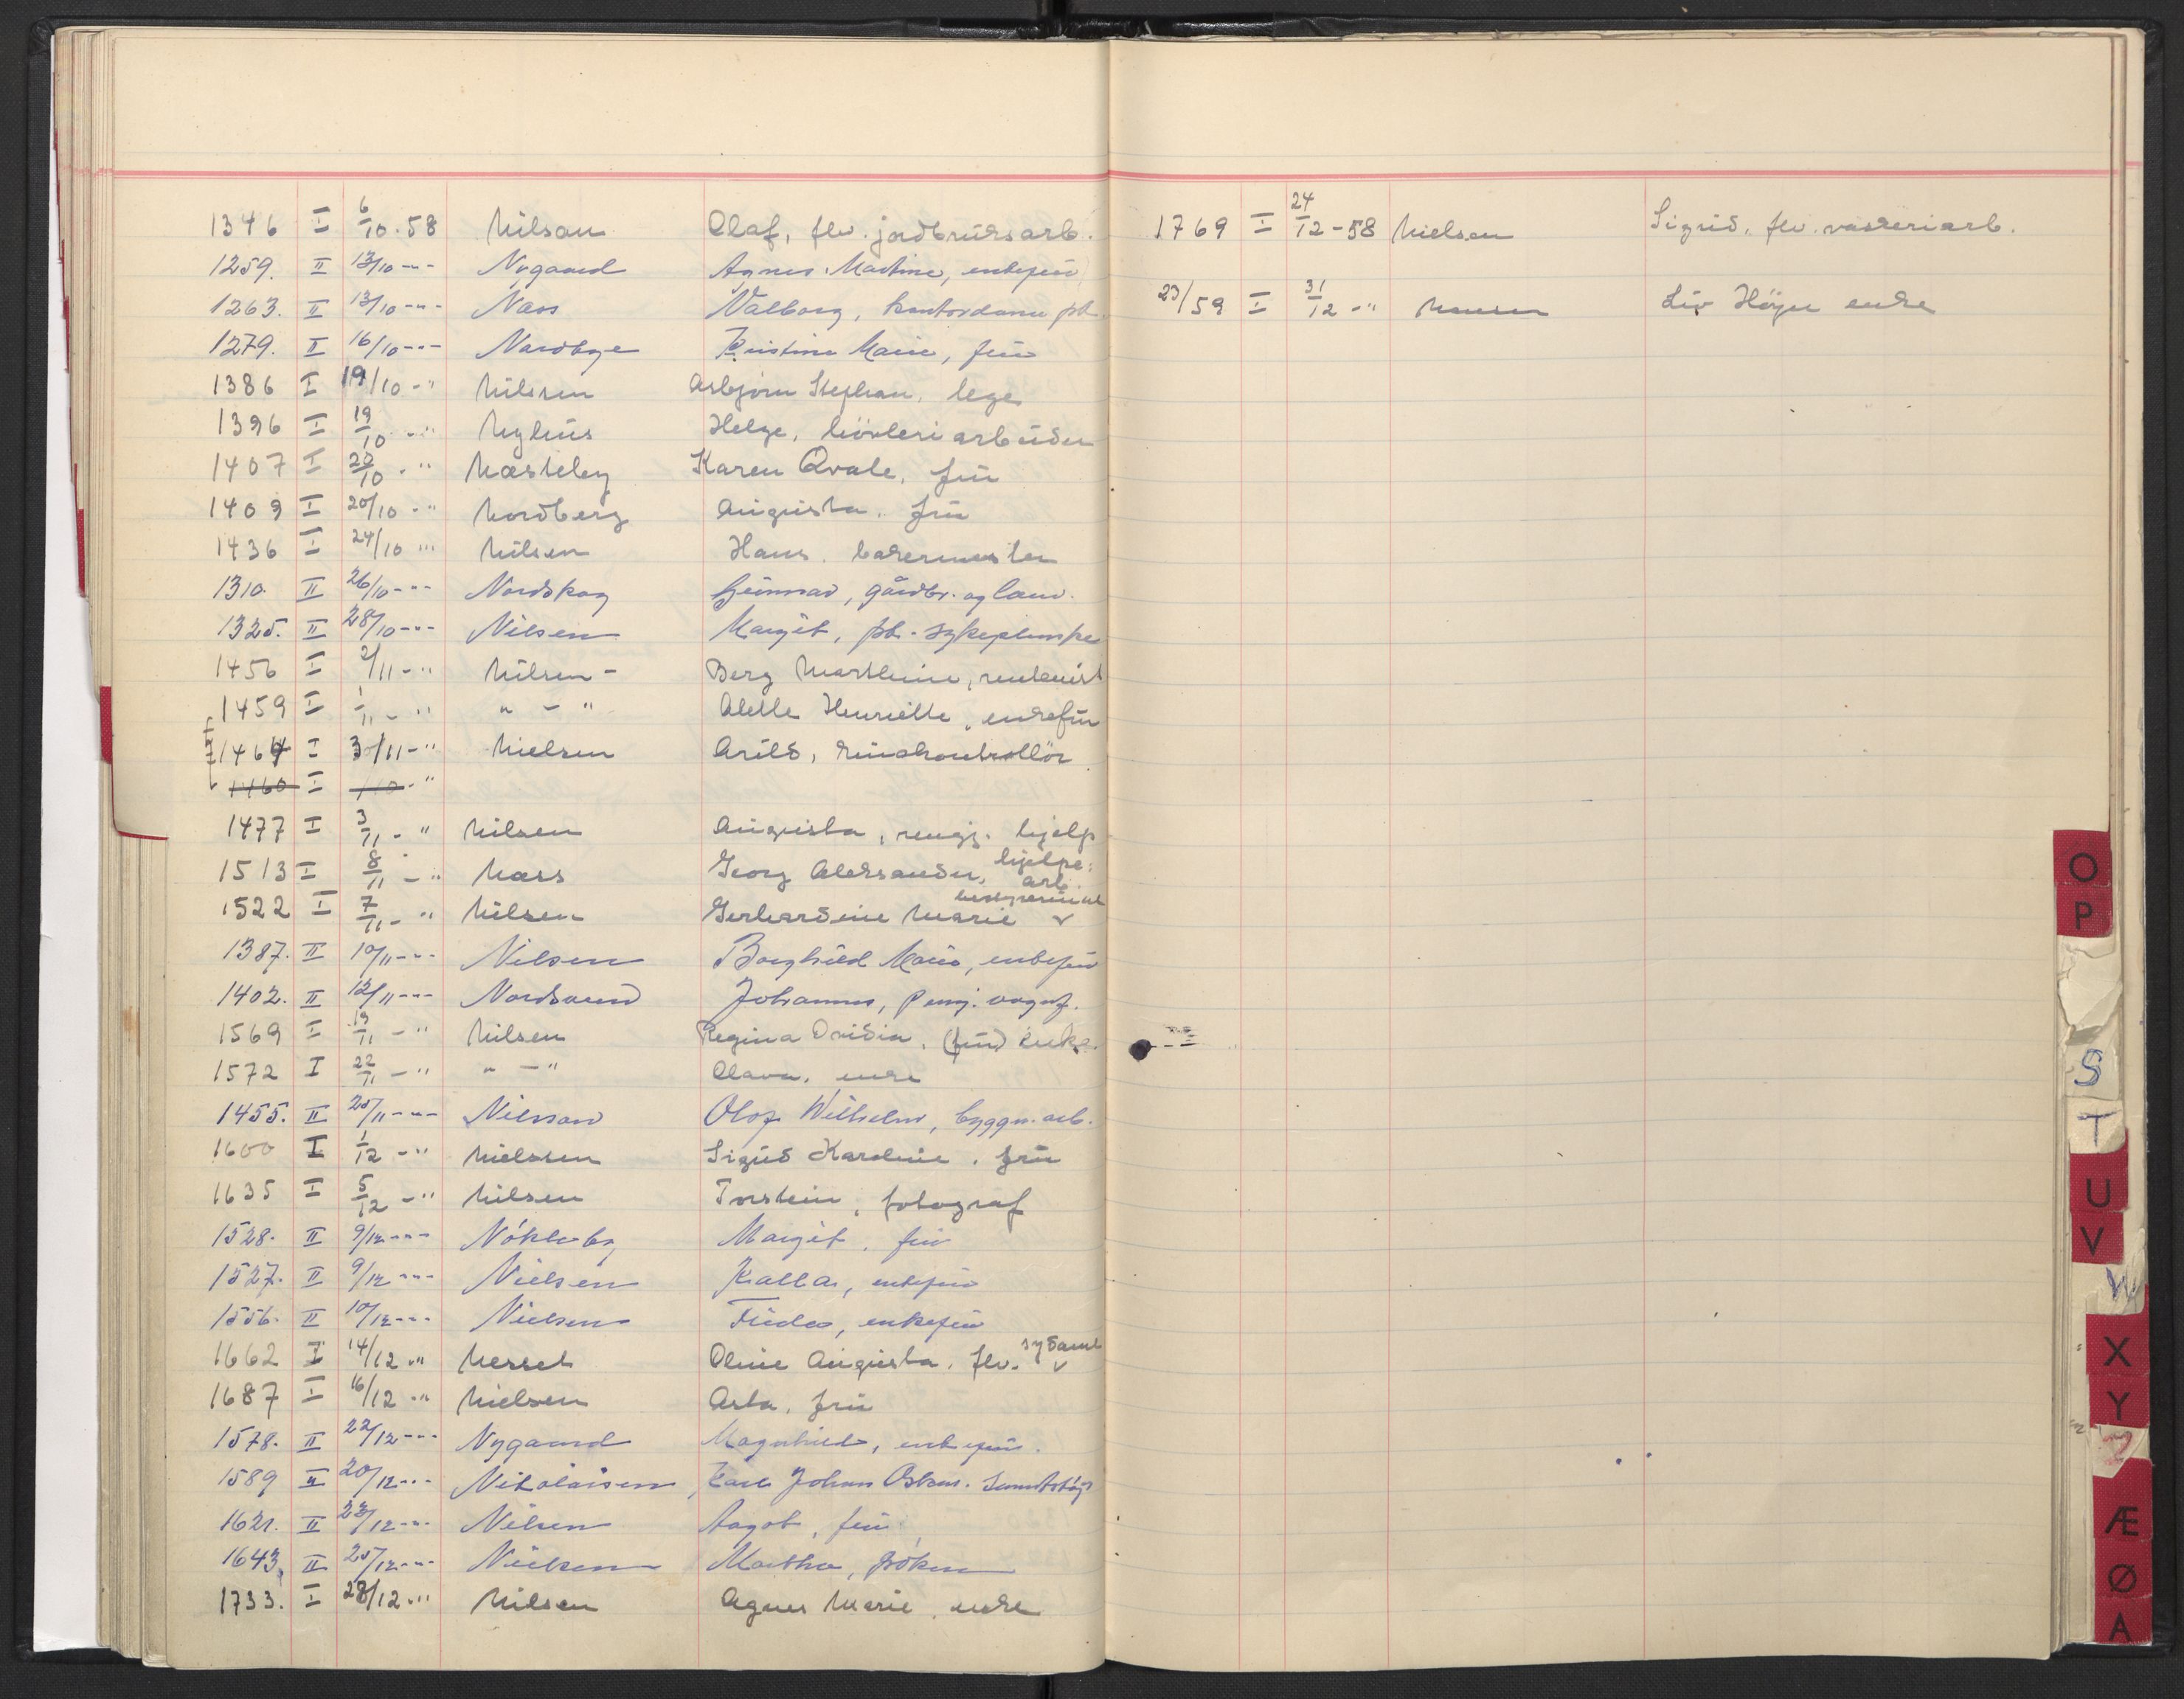 1346 I 6/10-58 Nilsen Olaf, flv. jordbruksarb.
1259. II 13/10 -"- Nygaard Agnes Martine, enkefru
1263. II 13/10 -"- Næss Valborg, kontordame pb.
1279. II 16/10 -"- Nardbye Kristine Marie, fru
1386 I 19/10 -" Nilssen Asbjørn Stephan, lege
1396 I 19/10 -" Nyhus Helge, høvleriarbeider
1407 I 22/10 -" Næsteby Karen Qvale, fru
1409 I 20/10 -" Nordberg Augusta, fru
1436 I 24/10 -" Nilsen Hans, bakermester
1310. II 26/10 -"- Nordskog Gunnar, gårdbr. og
1325. II 28/10 -"- Nilsen Margit, pb. sykepleierske
1456 I 2/11 -" Nilsen - Berg Marthine, rentenist
1459 I 1/11 -" " - " Alette Henriette, enkefru
1464 I 3/11 -" Nielsen Arild, kinokontrollør
1460 I /10 -"
1477 I 3/11 -" Nilsen Augusta, rengj. hjelp
1513 I 8/11 -" Næss Georg Aleksander, hjelpe: arb.
1522 I 7/11 -" Nilsen Gerhardine Marie bestyrerinne
1387. II 10/11 -"- Nilsen Borghild Marie, enkefru
1402. II 12/11 -"- Nordsand Johannes, pensj. vognf.
1569 I 19/11 -" Nilsen Regina Ovidia, (fru) enke.
1572 I 22/11 -" " - " Olava, enke
1455. II 25/11 -"- Nilsson Olof Wilhelm, byggn. arb.
1600 I 1/12 -" Nielssen Sigrid Karoline, fru
1635 I 5/12 -" Nilsen Torstein, fotograf
1528. II 9/12 -"- Nökleby Margit, fru
1527. II 9/12 -"- Nielsen Kalla, enkefru
1556. II 10/12 -"- Nielsen Frida, enkefru
1662 I 14/12 -" Nerset Oline Augusta, flv. sydame
1687 I 16/12 -" Nielsen Asta, fru
1578. II 22/12 -"- Nygaard Magnhild, enkefru.
1589 II 20/12 -"- Nikolaisen, Karl Johan Oskar.
1621. II 23/12 -"- Nilsen Aagot, fru
1643. II 25/12 -"- Nielsen Martha, frøken
1733. I 28/12 -" Nilsen Agnes Marie, enke
1769 I 24/12-58 Nielsen Sigrid, flv. vaskeriarb.
23/59 I 31/12 -" Nansen Liv Høyer enke
O
P
S
T
U
V
W
X
Y
Æ
Ø
A